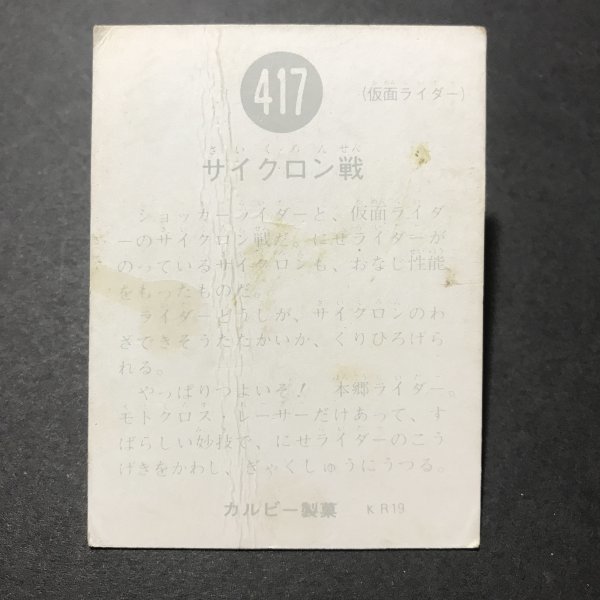 417
(仮面ライダー)
サイクロン戦
ショッカーライダーと、仮面ライダ
ーのサイクロン戦だ。にせライダーが
のっているサイクロンも、おなじ性能
をもったものだ。
ライダーどうしが、サイクロンのわ
ざできそうたたかいか、くりひろげら
れる。
やっぱりつよいぞ! 本郷ライダー。
モトクロス・レーサーだけあって、す
ばらしい妙技で、にせライダーのこう
げきをかわし、ぎゃくしゅうにうつる。
カルビー製菓 KR19